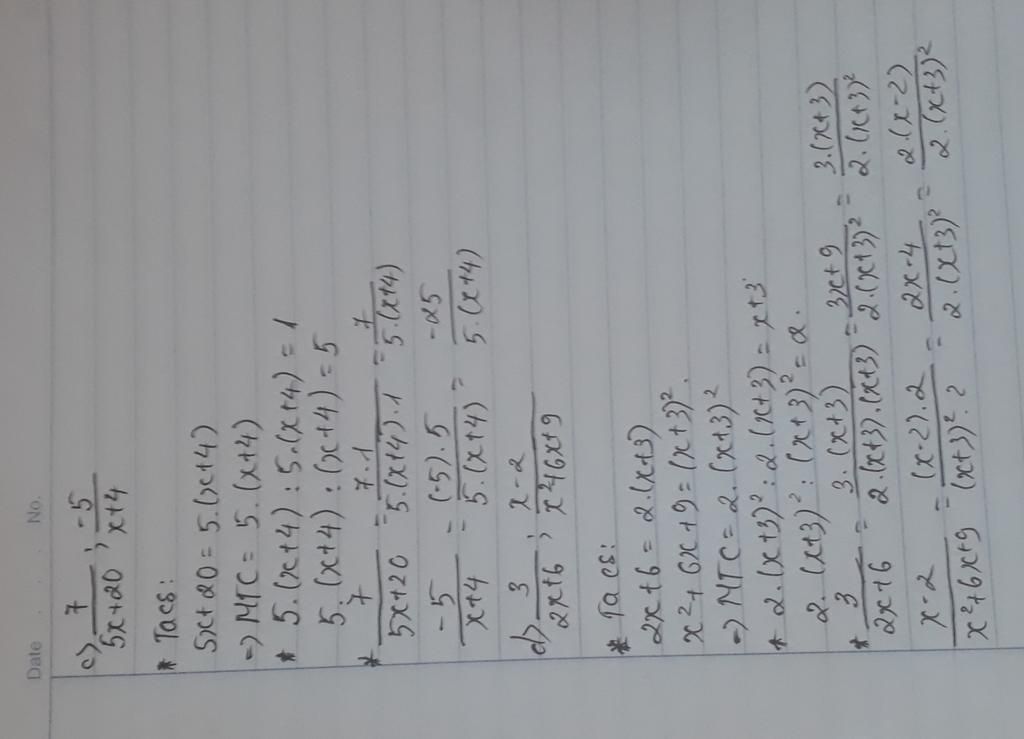 Date No.
c) 7/5x+20 ; -5/x+4
* Tacs:
5x+20 = 5.(x+4)
=> MTC = 5.(x+4)
* 5.(x+4) : 5.(x+4) = 1
5.(x+4) : (x+4) = 5
* 7/5x+20 = 7.1/5.(x+4).1 = 7/5.(x+4)
-5/x+4 = (-5).5/5.(x+4) = -25/5.(x+4)
d) 3/2x+6 ; x-2/x²+6x+9
* Tacs:
2x+6 = 2.(x+3)
x²+6x+9 = (x+3)².
=> MTC = 2.(x+3)²
* 2.(x+3)² : 2.(x+3) = x+3
2.(x+3)² : (x+3)² = 2.
* 3/2x+6 = 3.(x+3)/2.(x+3).(x+3) = 3x+9/2.(x+3)² = 3.(x+3)/2.(x+3)²
x-2/x²+6x+9 = (x-2).2/(x+3)².2 = 2x-4/2.(x+3)² = 2.(x-2)/2.(x+3)²